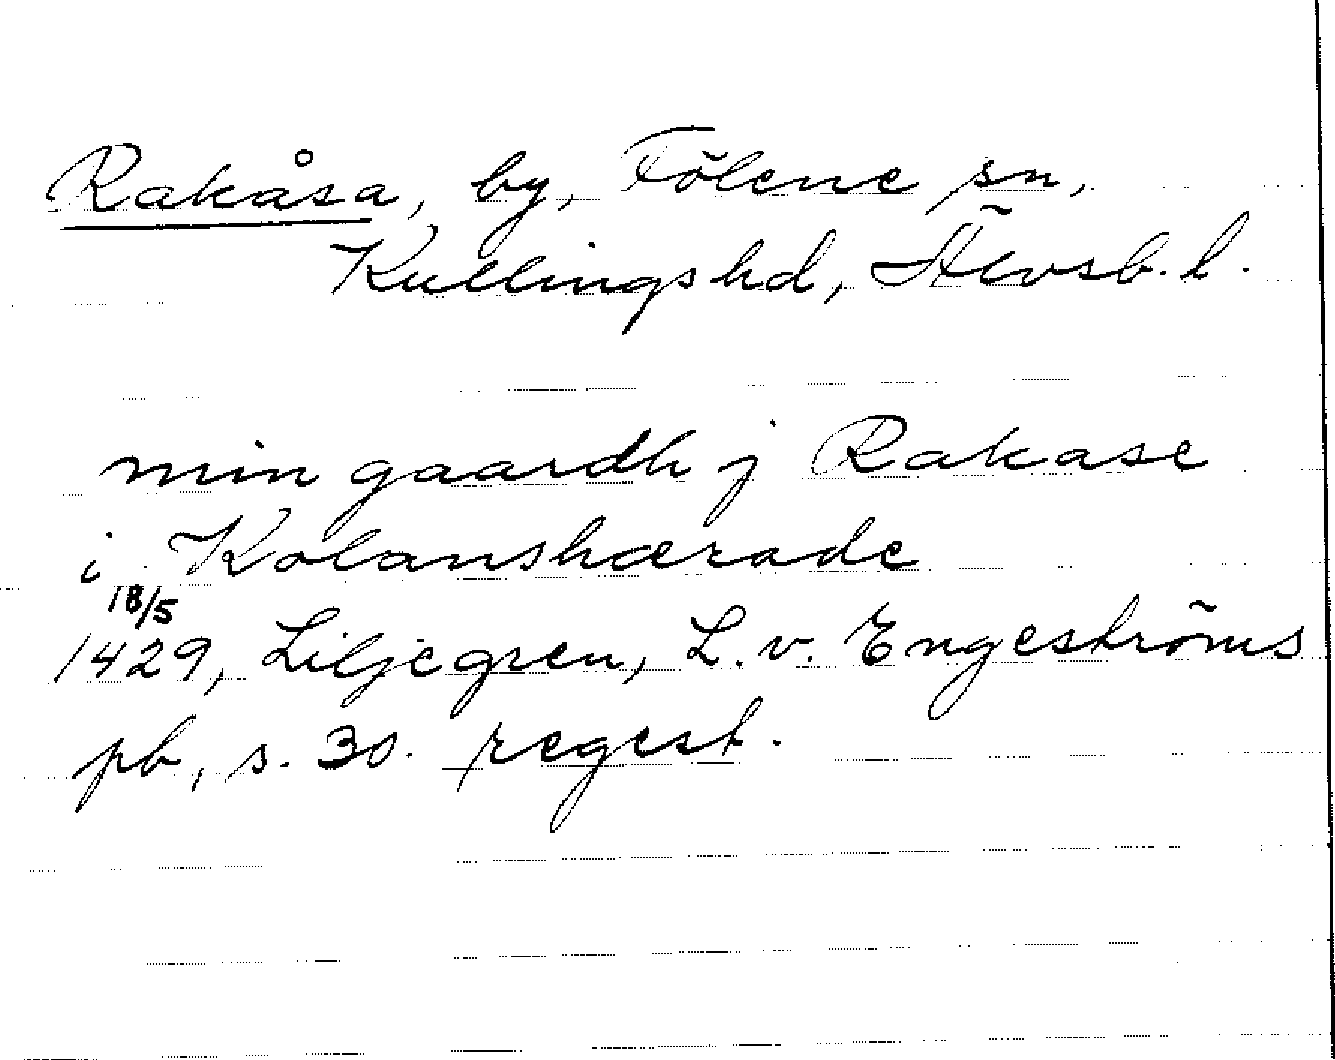 Rakåsa, by, Fölene sn,
Kullings hd, Älvsb. l.
min gaardh j Rakase
i Kolanshærade
18/5
1429, Liljegren, L. v. Engeströms
pb, s. 30. regest.